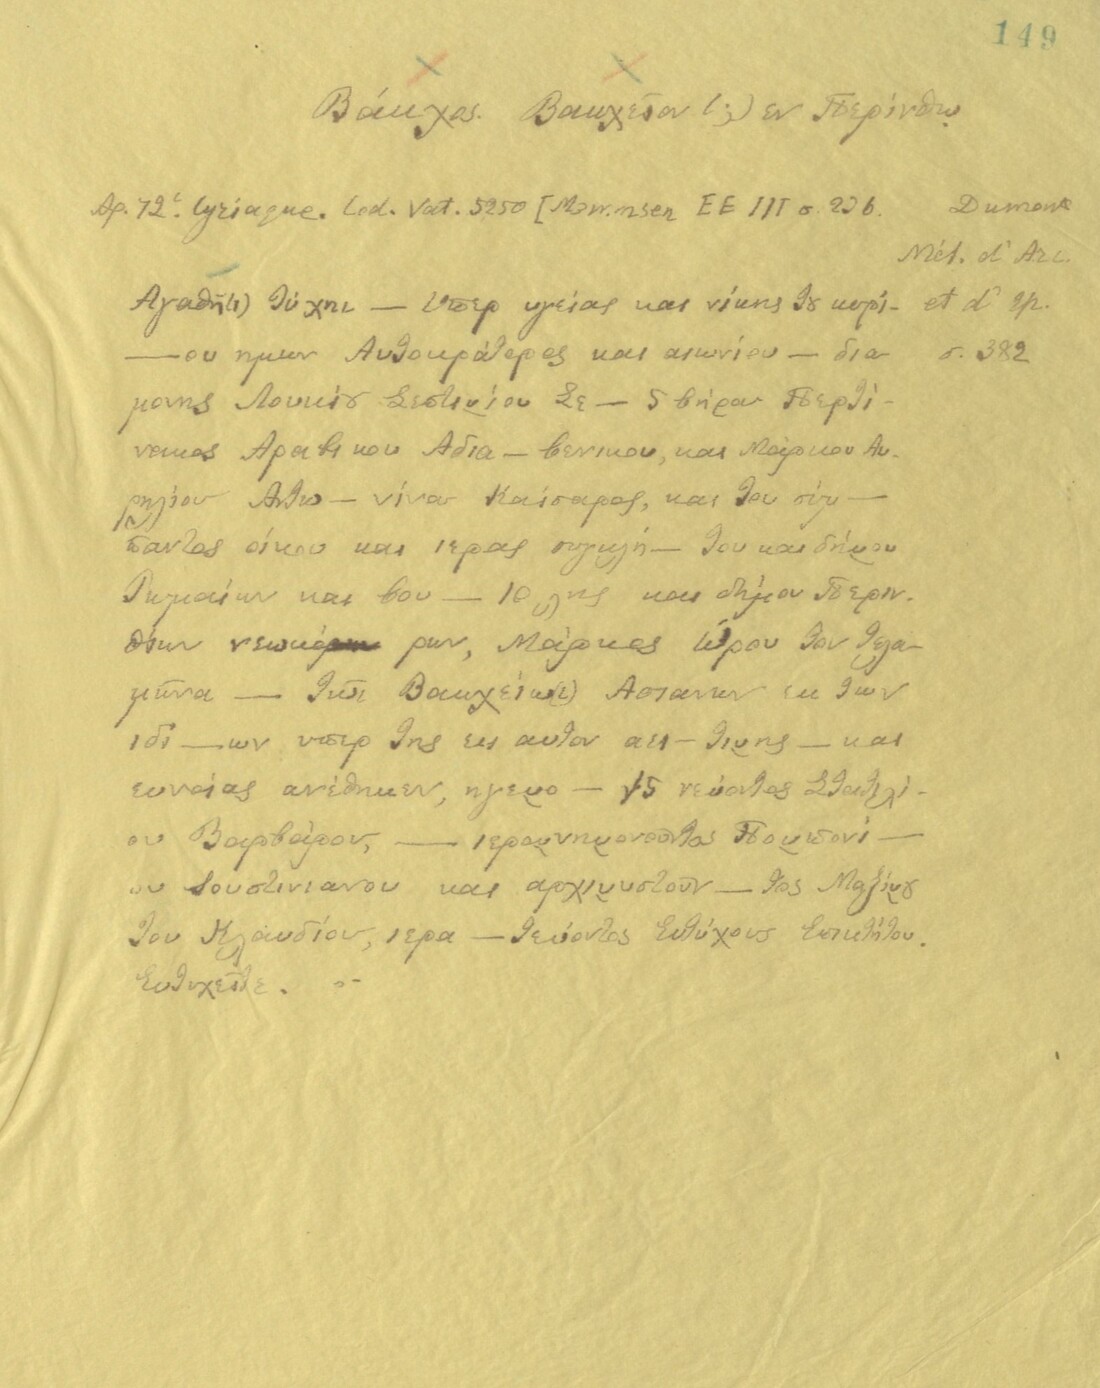 149
Βάκχος. Βακχεῖον (;) εν Περίνθω
Αρ. 72ᶜ. Cyriaque. Cod. Vat. 5250 [Mommsen EE III σ. 236. Dumont
Mél. d' Arc.
Αγαθῆ(ι) Τύχηι — Υπερ υγείας και νίκης του κυρί- et d' ep.
— ου ημων Αυτοκράτορος και αιωνίου — δια σ. 382
μονης Λουκίου Σεπτιμίου Σε — 5 βήρου Περτί-
νακος Αραβικου Αδια — βενικου, και Μάρκου Αυ-
ρηλίου Αντω — νίνου Καίσαρος, και του σύμ —
παντος οίκου και ιερας συγκλή — του και δήμου
Ρωμαίων και βου — 10 λης και δήμου Περιν-
θίων νεωκόρων, Μάρκος Ώρου τον Τελα-
μῶνα — Τῶι Βακχείω(ι) Ασιανων εκ των
ιδί — ων υπερ της εις αυτον αει — τιμης — και
ευνοίας ανέθηκεν, ηγεμο — 15 νεύοντος Στατιλί-
ου Βαρβάρου, — ιερομνημονοῦντος Πομπονί —
ου Ιουστινιανου και αρχιμυστοῦν — τος Μαξίμου
του Κλαυδίου, ιερα — τεύοντος Ευτύχους Επικτήτου.
Ευτυχεῖτε.